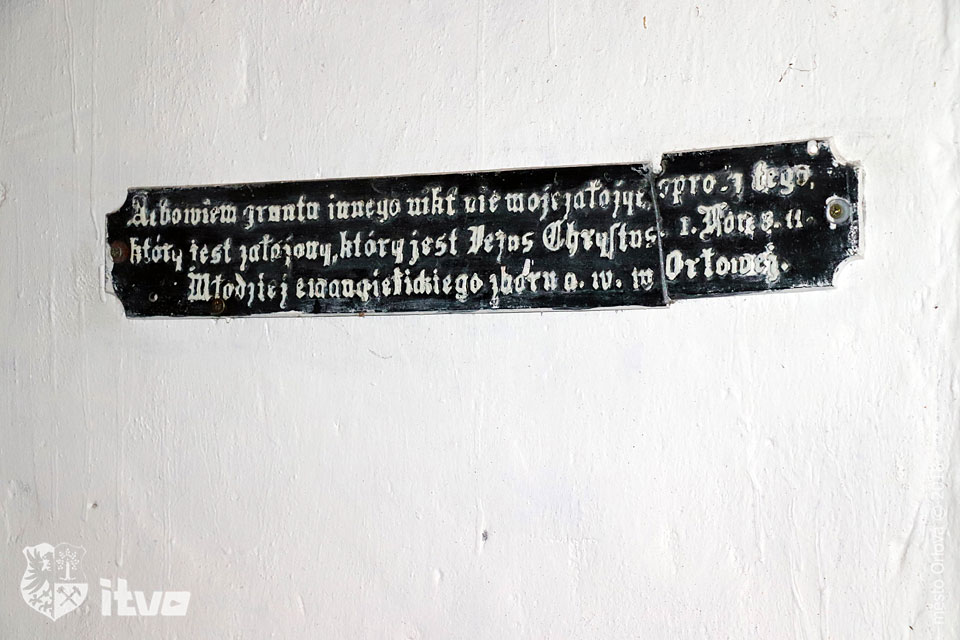 Albowiem gruntu innego nikt nie może założyć, opró.. tego,
który jest założony, który jest Jezus Chrystus. 1. Kor. 3. 11.
Młodzież ewangielickiego zboru a. w. w Orłowej.
itvo
město Orlová